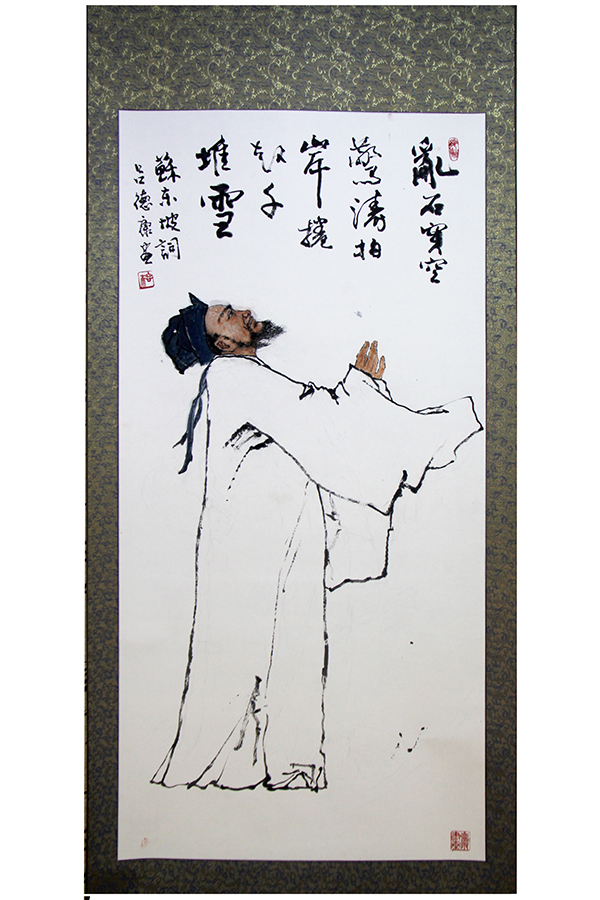 亂石穿空
驚濤拍
岸捲
起千
堆雪
蘇东坡詞
吕德康畫